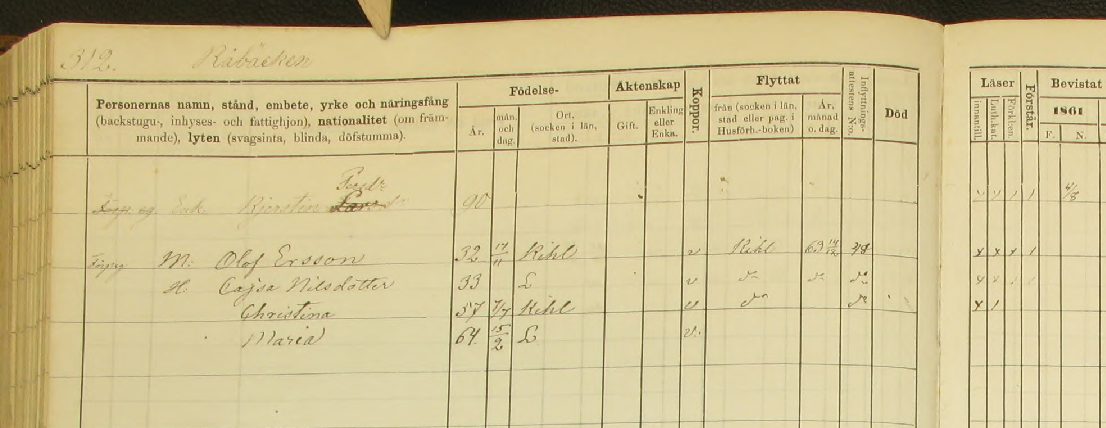 312. Råbäcken
Personernas namn, stånd, embete, yrke och näringsfång
(backstugu-, inhyses- och fattighjon), nationalitet (om främ-
mande), lyten (svagsinta, blinda, döfstumma).
Födelse-
År.
mån. och dag.
Ort. (socken i län, stad).
Äktenskap
Gift.
Enkling eller Enka.
Koppor.
Flyttat
från (socken i län, stad eller pag. i Husförh.-boken)
År, månad o. dag.
Inflyttnings-attestens N:o.
Död
Läser
innantill.
Luth. kat.
Förklar.
Förstår.
Bevistat
1861
F. N.
Enk. Kjerstin 90
M. Olof Ersson 32 Kihl v Kihl 63 48
H. Cajsa Nilsdotter 33 L v do do do
Christina 57 7/7 Kihl v do do
Maria 64 15/2 L v.